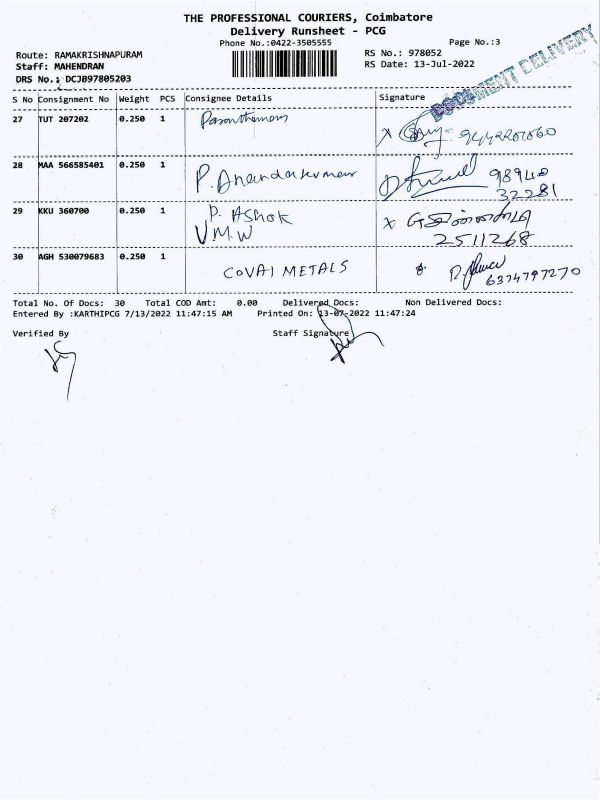 THE PROFESSIONAL COURIERS, Coimbatore
Delivery Runsheet - PCG
Phone No.:0422-3505555
Page No.:3
Route: RAMAKRISHNAPURAM
RS No.: 978052
Staff: MAHENDRAN
RS Date: 13-Jul-2022
DRS No.: DCJ897805203
DOCUMENT DELIVERY
S No Consignment No Weight PCS Consignee Details Signature
27 TUT 207202 0.250 1
28 MAA 566585401 0.250 1 P. Anandakumar
98940
32281
29 KKU 360700 0.250 1 P. Ashok
V.M.W
2511268
30 AGH 530079683 0.250 1 COVAI METALS
6374797270
Total No. Of Docs: 30 Total COD Amt: 0.00 Delivered Docs: Non Delivered Docs:
Entered By :KARTHIPCG 7/13/2022 11:47:15 AM Printed On: 13-07-2022 11:47:24
Verified By Staff Signature